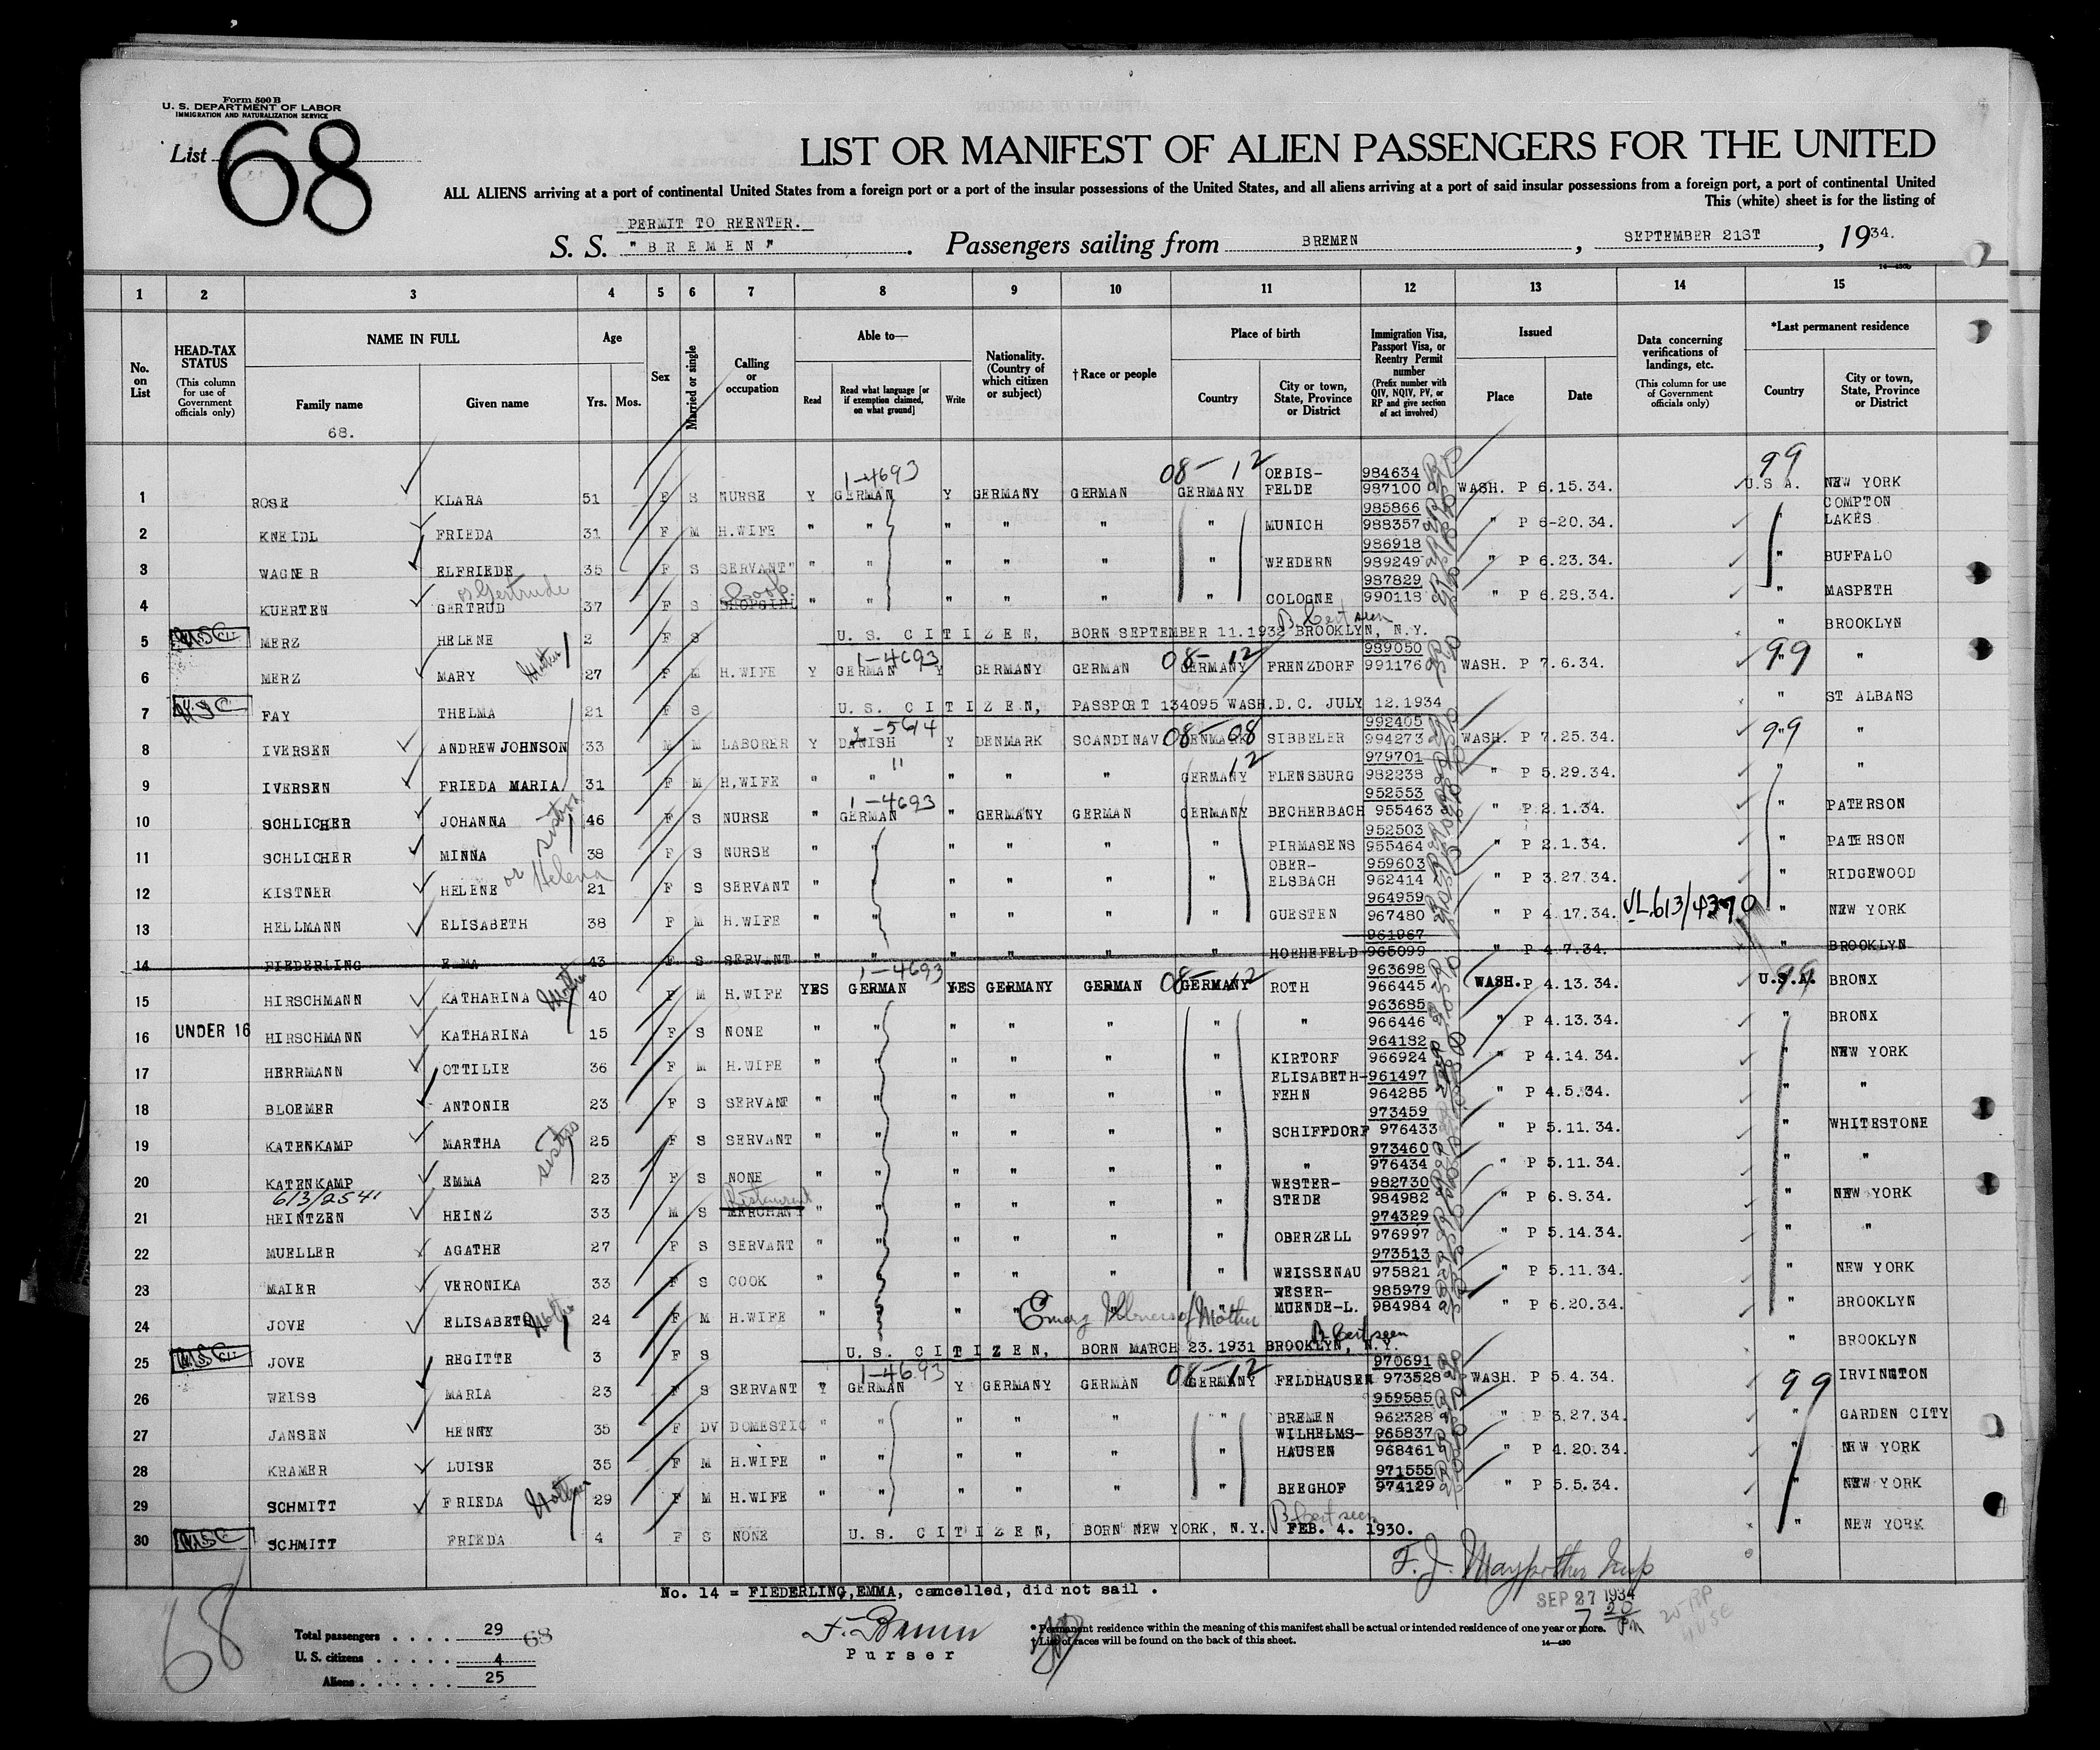 Form 500 B
U. S. DEPARTMENT OF LABOR
IMMIGRATION AND NATURALIZATION SERVICE
List 68
LIST OR MANIFEST OF ALIEN PASSENGERS FOR THE UNITED
ALL ALIENS arriving at a port of continental United States from a foreign port or a port of the insular possessions of the United States, and all aliens arriving at a port of said insular possessions from a foreign port, a port of continental United
This (white) sheet is for the listing of
PERMIT TO REENTER.
S. S. "BREMEN". Passengers sailing from BREMEN, SEPTEMBER 21ST, 1934.
1 2 3 4 5 6 7 8 9 10 11 12 13 14 15
No. on List
HEAD-TAX STATUS (This column for use of Government officials only)
NAME IN FULL
Family name Given name
68.
Age Yrs. Mos.
Sex
Married or single
Calling or occupation
Able to—
Read
Read what language [or if exemption claimed, on what ground]
Write
Nationality. (Country of which citizen or subject)
†Race or people
Place of birth
Country
City or town, State, Province or District
Immigration Visa, Passport Visa, or Reentry Permit number (Prefix number with QIV, NQIV, PV, or RP and give section of act involved)
Issued
Place Date
Data concerning verifications of landings, etc. (This column for use of Government officials only)
*Last permanent residence
Country
City or town, State, Province or District
1-4693 08-12 99
1 ROSE KLARA 51 F S NURSE Y GERMAN Y GERMANY GERMAN GERMANY OEBIS-FELDE 984634 987100 WASH. P 6.15.34. U.S A. NEW YORK
2 KNEIDL FRIEDA 31 F M H.WIFE " " " " " " MUNICH 985866 988357 " P 6-20.34. " COMPTON LAKES
3 WAGNER ELFRIEDE 35 F S SERVANT" " " " " " " WEEDERN 986918 989249 " P 6.23.34. " BUFFALO
or Gertrude Cook
4 KUERTEN GERTRUD 37 F S SHOPGIRL " " " " " " COLOGNE 987829 990118 " P 6.28.34. " MASPETH
B Cert seen
5 USC MERZ HELENE 2 F S U. S. CITIZEN, BORN SEPTEMBER 11.1932 BROOKLYN, N.Y. " BROOKLYN
Mother 1-4693 08-12 99
6 MERZ MARY 27 F M H.WIFE Y GERMAN Y GERMANY GERMAN GERMANY FRENZDORF 989050 991176 WASH. P 7.6.34. " "
7 USC FAY THELMA 21 F S U. S. CITIZEN, PASSPORT 134095 WASH.D.C. JULY 12.1934 " ST ALBANS
08-08 99
8 IVERSEN ANDREW JOHNSON 33 M M LABORER Y DANISH Y DENMARK SCANDINAV DENMARK SIBBELER 992405 994273 WASH. P 7.25.34. " "
12
9 IVERSEN FRIEDA MARIA 31 F M H.WIFE " " " " " GERMANY FLENSBURG 979701 982238 " P 5.29.34. " "
1-4693
10 SCHLICHER JOHANNA 46 F S NURSE " GERMAN " GERMANY GERMAN GERMANY BECHERBACH 952553 955463 " P 2.1.34. " PATERSON
sisters
11 SCHLICHER MINNA 38 F S NURSE " " " " " " PIRMASENS 952503 955464 " P 2.1.34. " PATERSON
or Helena
12 KISTNER HELENE 21 F S SERVANT " " " " " " OBER-ELSBACH 959603 962414 " P 3.27.34. " RIDGEWOOD
13 HELLMANN ELISABETH 38 F M H.WIFE " " " " " " GUESTEN 964959 967480 " P 4.17.34. VL613/4390 " NEW YORK
14 FIEDERLING EMMA 43 F S SERVANT " " " " " " HOEHEFELD 961967 965099 " P 4.7.34. " BROOKLYN
Mother 1-4693 08-12 99
15 HIRSCHMANN KATHARINA 40 F M H.WIFE YES GERMAN YES GERMANY GERMAN GERMANY ROTH 963698 966445 WASH. P 4.13.34. U.S.A. BRONX
16 UNDER 16 HIRSCHMANN KATHARINA 15 F S NONE " " " " " " " 963685 966446 " P 4.13.34. " BRONX
17 HERRMANN OTTILIE 36 F M H.WIFE " " " " " " KIRTORF 964182 966924 " P 4.14.34. " NEW YORK
18 BLOEMER ANTONIE 23 F S SERVANT " " " " " " ELISABETH-FEHN 961497 964285 " P 4.5.34. " "
19 KATENKAMP MARTHA 25 F S SERVANT " " " " " " SCHIFFDORF 973459 976433 " P 5.11.34. " WHITESTONE
sisters
20 KATENKAMP EMMA 23 F S NONE " " " " " " " 973460 976434 " P 5.11.34. " "
613/2541 Restaurant
21 HEINTZEN HEINZ 33 M S MERCHANT " " " " " " WESTER-STEDE 982730 984982 " P 6.8.34. " NEW YORK
22 MUELLER AGATHE 27 F S SERVANT " " " " " " OBERZELL 974329 976997 " P 5.14.34. " "
23 MAIER VERONIKA 33 F S COOK " " " " " " WEISSENAU 973513 975821 " P 5.11.34. " NEW YORK
Mother Emerg Illness of Mother
24 JOVE ELISABETH 24 F M H.WIFE " " " " " " WESER-MUENDE-L. 985979 984984 " P 6.20.34. " BROOKLYN
B Cert seen
25 USC JOVE REGITTE 3 F S U. S. CITIZEN, BORN MARCH 23.1931 BROOKLYN, N.Y. " BROOKLYN
1-4693 08-12 99
26 WEISS MARIA 23 F S SERVANT Y GERMAN Y GERMANY GERMAN GERMANY FELDHAUSEN 970691 973528 WASH. P 5.4.34. IRVINGTON
27 JANSEN HENNY 35 F DV DOMESTIC " " " " " " BREMEN 959585 962328 " P 3.27.34. " GARDEN CITY
28 KRAMER LUISE 35 F M H.WIFE " " " " " " WILHELMS-HAUSEN 965837 968461 " P 4.20.34. " NEW YORK
Mother
29 SCHMITT FRIEDA 29 F M H.WIFE " " " " " " BEEGHOF 971555 974129 " P 5.5.34. " NEW YORK
B Cert seen
30 USC SCHMITT FRIEDA 4 F S NONE U. S. CITIZEN, BORN NEW YORK, N.Y. FEB. 4. 1930. " NEW YORK
No. 14 = FIEDERLING,EMMA, cancelled, did not sail .
68
SEP 27 1934
Total passengers . . . . 29 68
U. S. citizens . . . . . 4
Aliens . . . . . . 25
Purser
* Permanent residence within the meaning of this manifest shall be actual or intended residence of one year or more.
† List of races will be found on the back of this sheet.
14—430